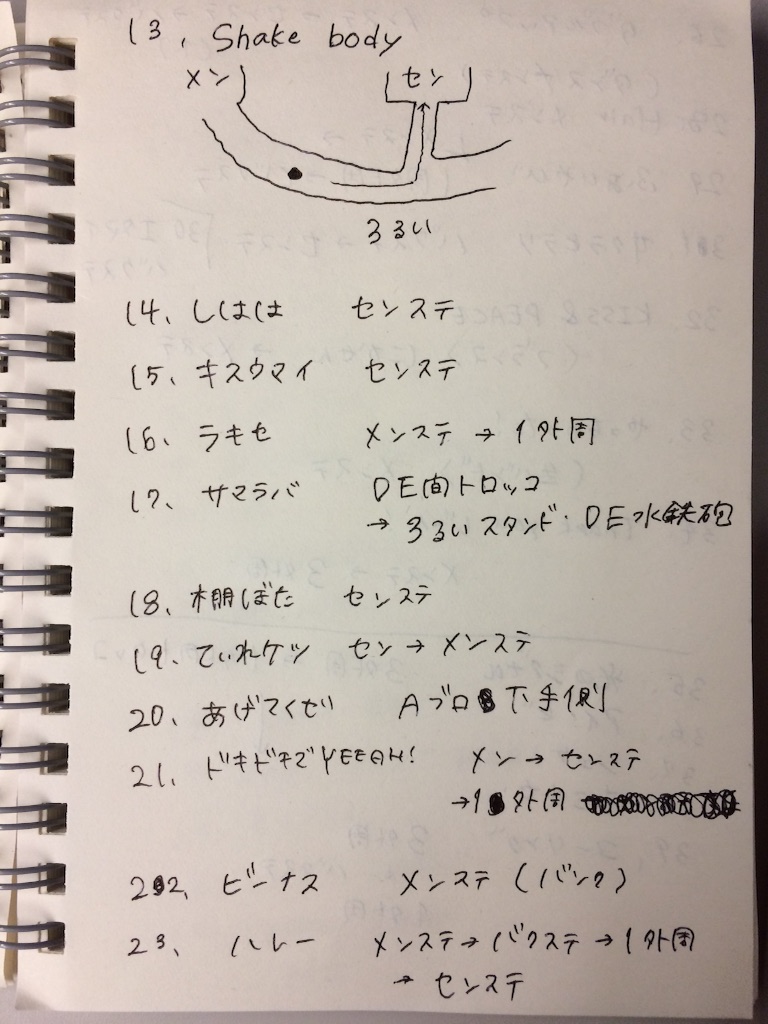 13、Shake body
メン
セン
3るい
14、しはは センステ
15、キスウマイ センステ
16、ラキセ メンステ→1外周
17、サマラバ DE間トロッコ
→3るいスタンド・DE水鉄砲
18、棚ぼた センステ
19、てぃれケツ セン→メンステ
20、あげてくぜ Aブロ下手側
21、ドキドキでYEEAH! メン→センステ
→1外周
22、ビーナス メンステ(バンク)
23、ハレー メンステ→バクステ→1外周
→センステ